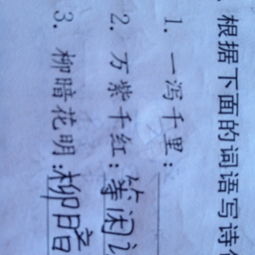 根据下面的词语写诗
1. 一泻千里:
2. 万紫千红: 等闲
3. 柳暗花明: 柳暗